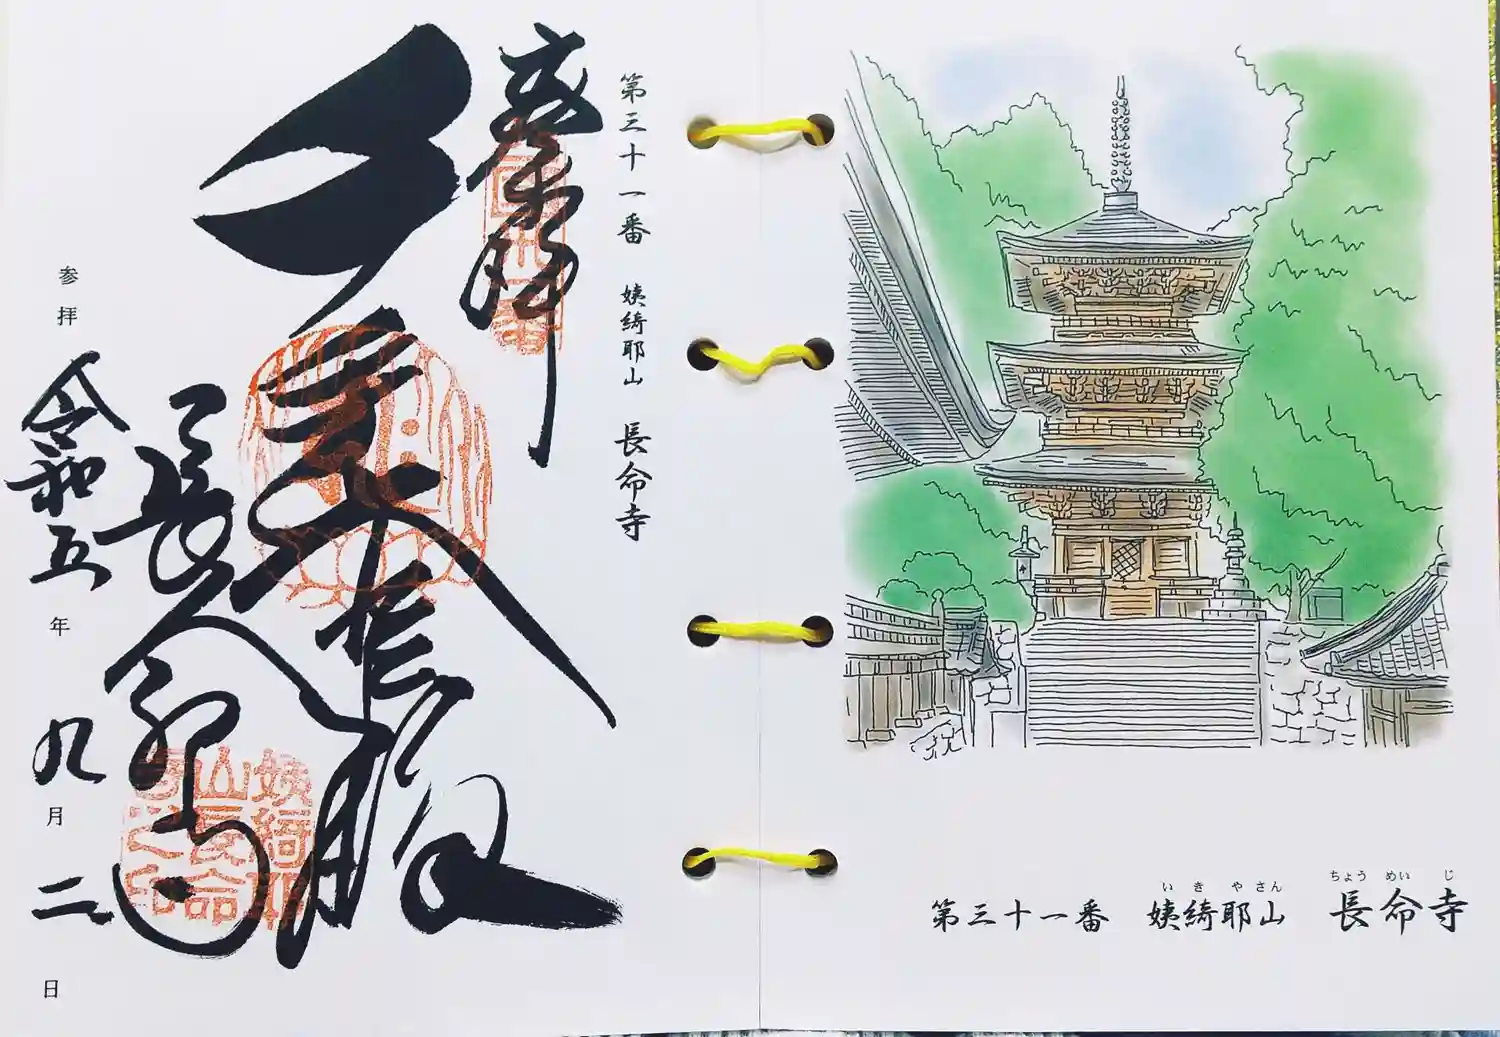 第三十一番 姨綺耶山 長命寺
奉拝
千手大悲殿
長命寺
姨綺耶
山長命
寺之印
参拝 令和五年 九月二日
ちょう めい じ
い き や さん
第三十一番 姨綺耶山 長命寺